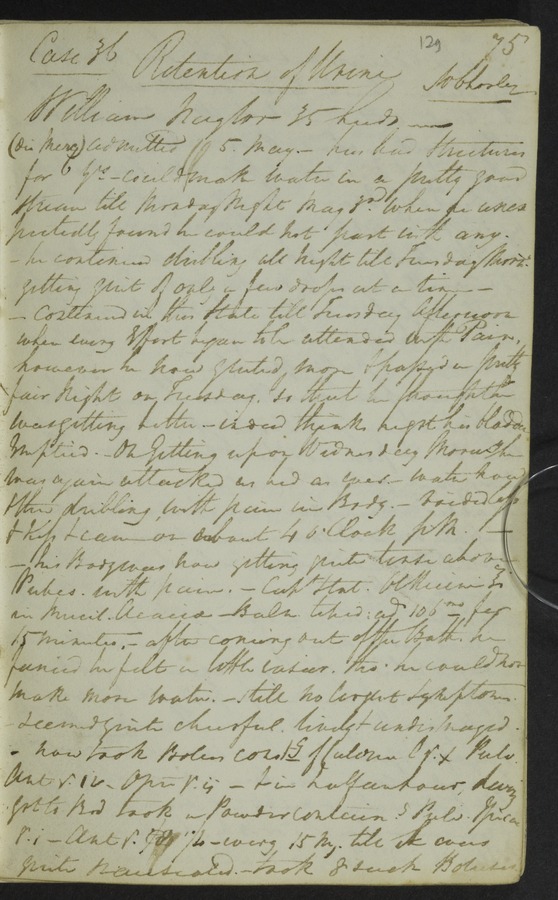 129 75
Case 36
Retention of Urine
William Naylor 35
admitted 5. May. - has had Strictures
for 6 Yrs - could make water in a pretty good
Stream till Monday Night May 3rd when he unex
pectedly found he could not part with any.
- he continued dribling all night till Tuesday Morn.
getting quit of only a few drops at a time -
- Continued in this State till Tuesday Afternoon
when every Effort began to be attended with Pain,
however he now more & passed a pretty
fair Night on Tuesday. So that he thought he
was getting better - indeed thinks he got his bladder
Emptied. - On Getting up on Wednesday Morning he
was again attacked as bad as ever - water
dribling with pain in Body. -
& came in about 4 o'Clock pM.
- his Body was now getting quite tense above
Pubes. with pain. - Capt Stat. Ol Ricini
in Mucil. Acaciæ - Baln tepid: ad 106 for
15 minutes, - after coming out of the Bath. he
fancied he felt a little easier. tho. he could not
make more water. - still no urgent Symptoms.
- seemed quite cheerful. lively & undismayed.
- now took Bolus consg of Calomel gr. x Pulv
Ant - Opii gr. ij - & in half an hour,
got to Bed took a Powder containg Pulv. Ipecac
gr. i - Ant - every 15 M, till he was
quite nauseated. - took 8 such Boluses